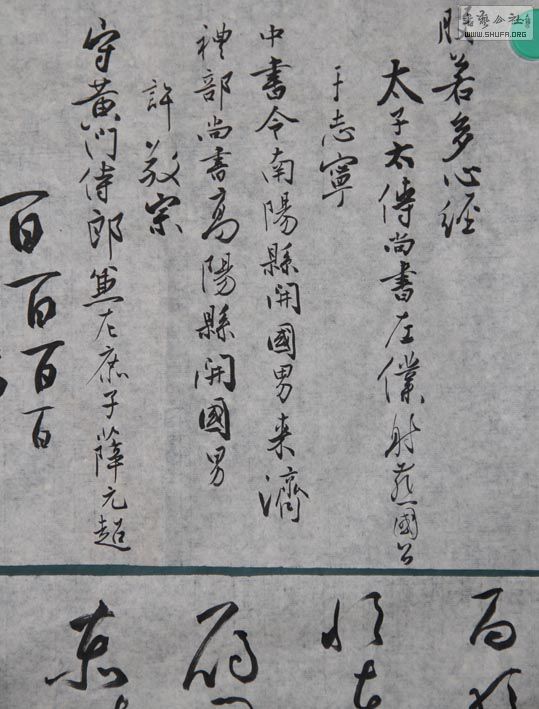 書藝公社
WWW.SHUFA.ORG
般若多心經
太子太傅尚書左僕射燕國公
于志寧
中書令南陽縣開國男来濟
禮部尚書高陽縣開國男
許敬宗
守黃門侍郎兼左庶子薛元超
百百百百